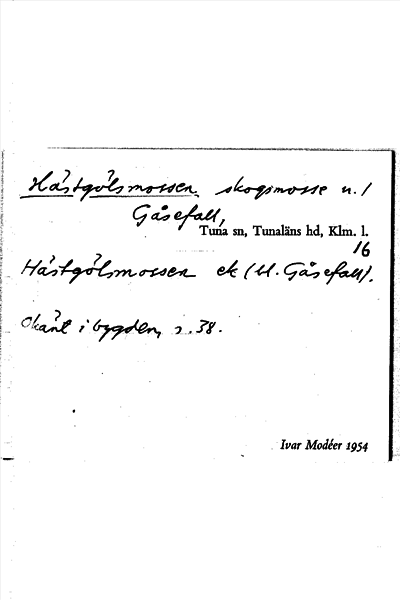 Hästgölsmossen, skogsmosse u. /
Gåsefall,
Tuna sn, Tunaläns hd, Klm. l.
16
Hästgölsmossen ek (U. Gåsefall).
Okänt i bygden, s. 38.
Ivar Modéer 1954